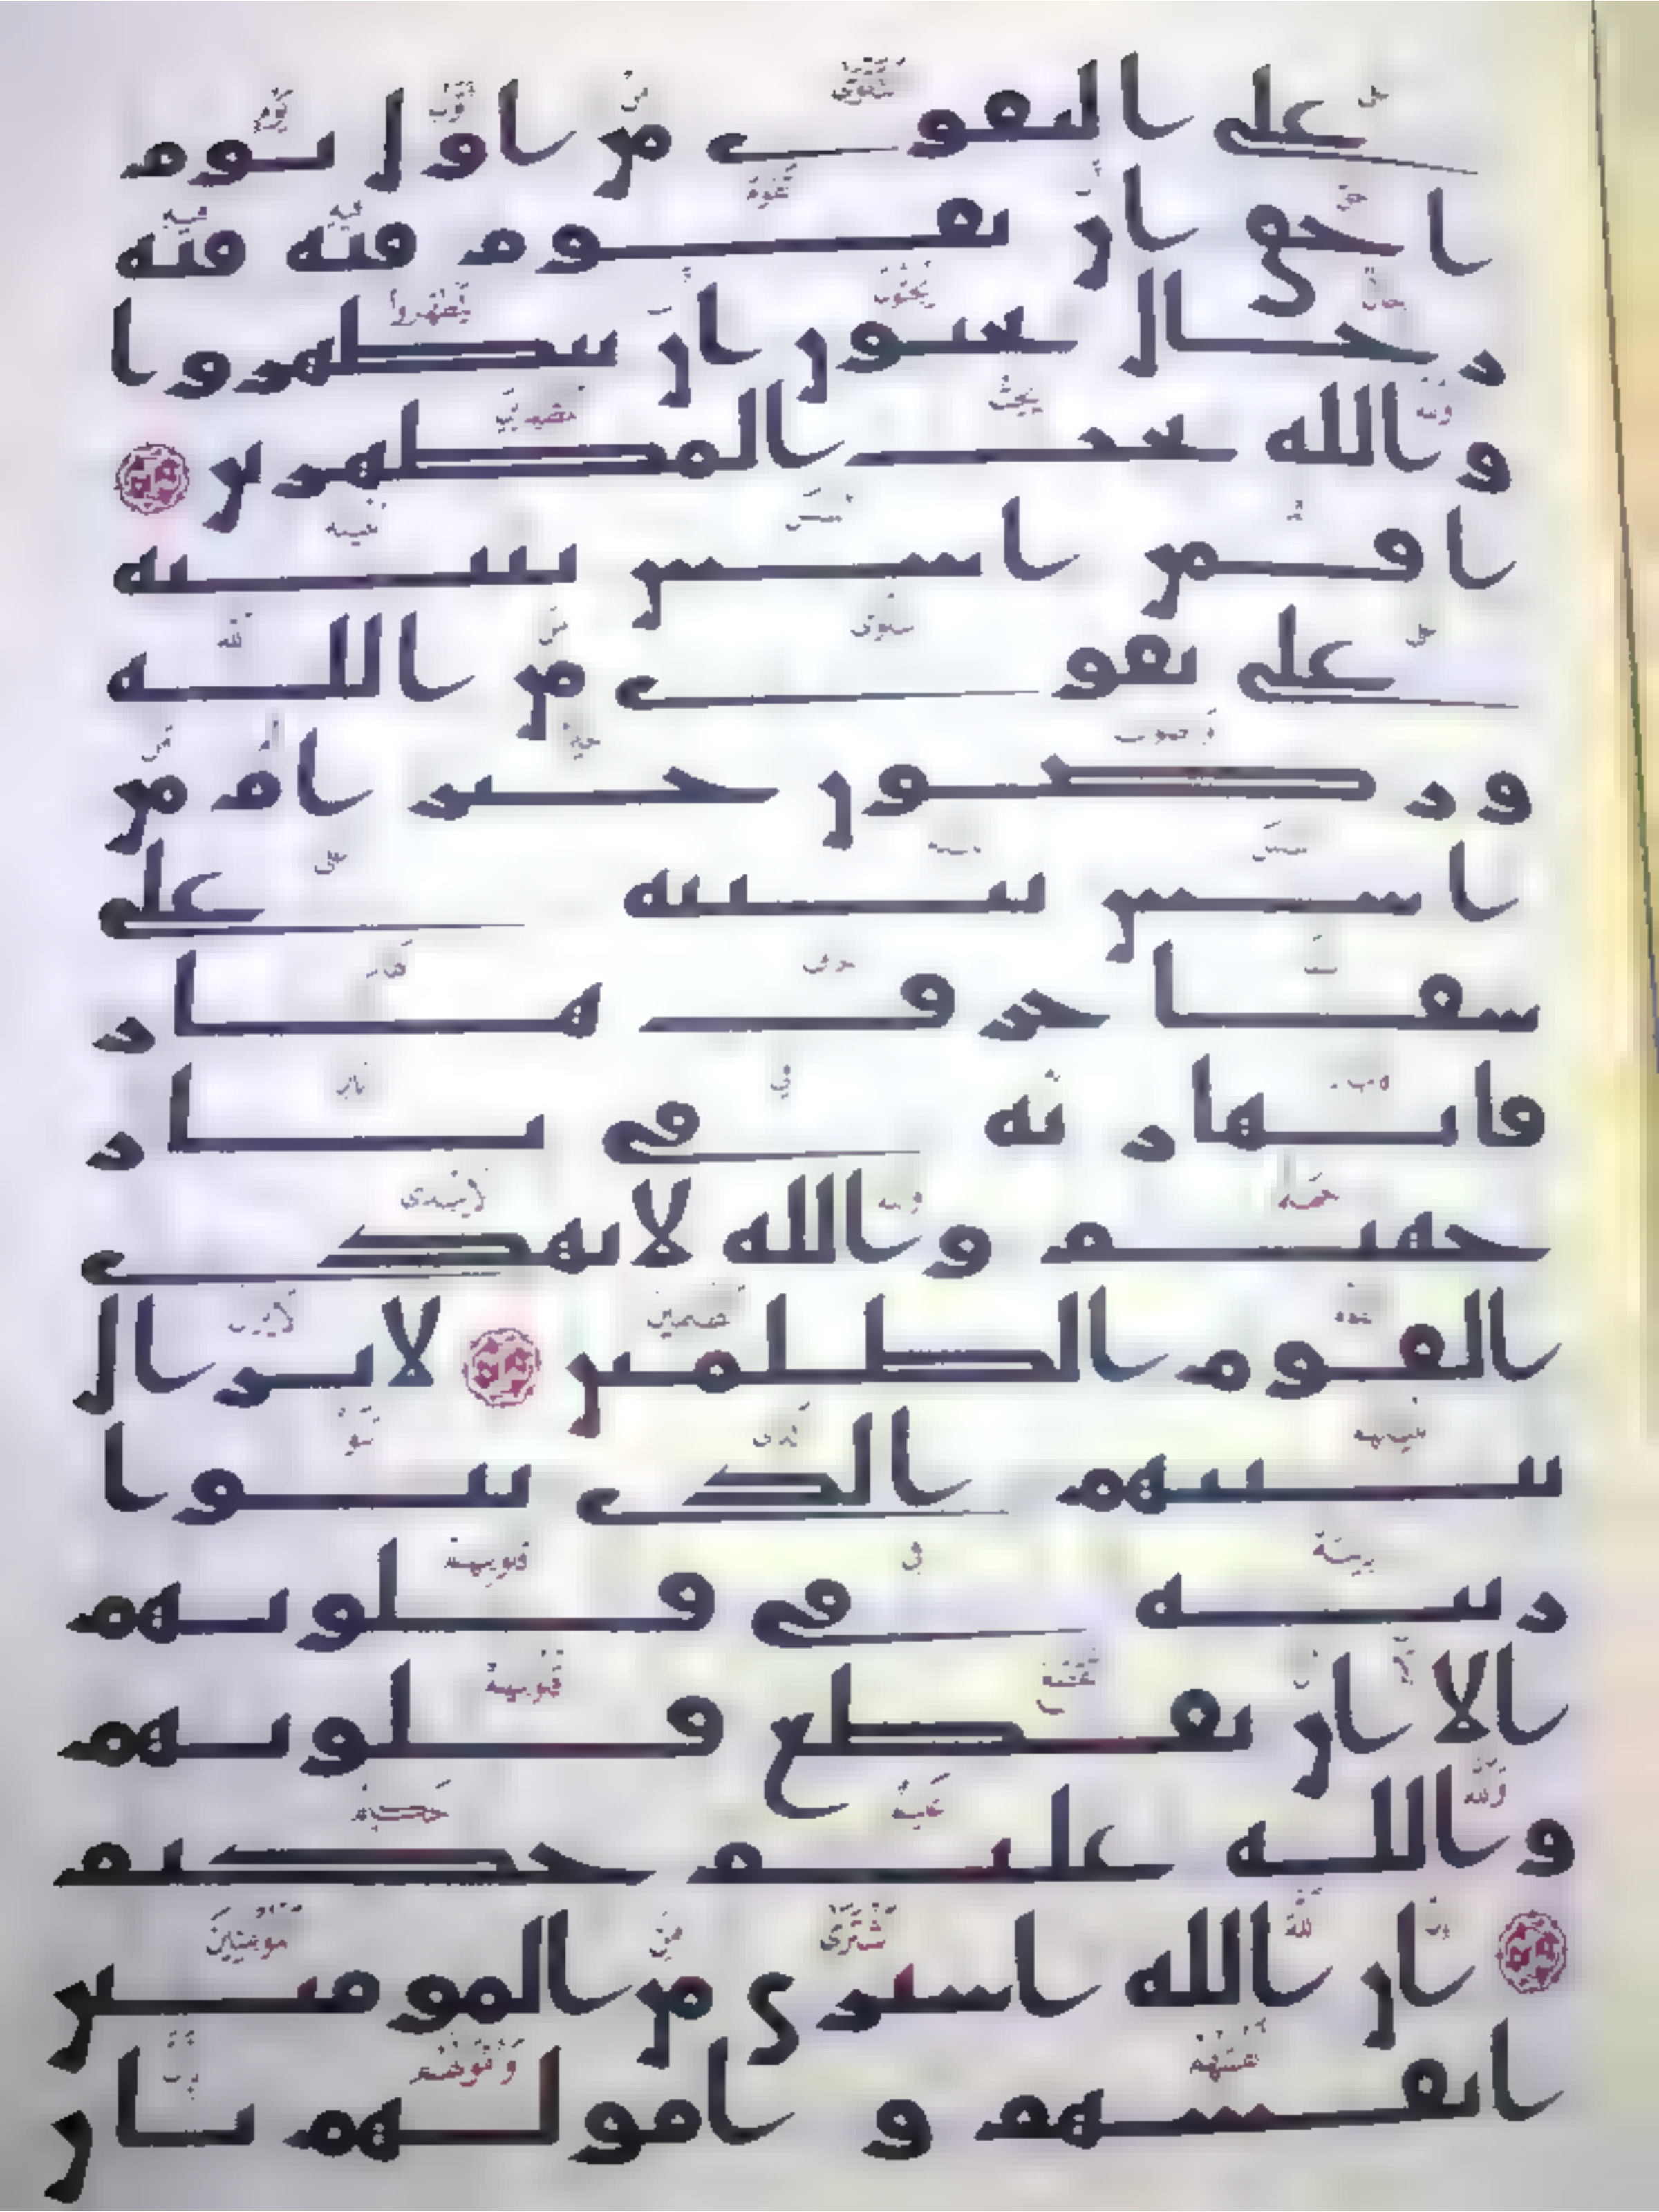 على التقوى من اول يوم
احق ان تقوم فيه فيه
رجال يحبون ان يتطهروا
والله يحب المطهرين
افمن اسس بنينه
على تقوى من الله
ورضون خير ام من
اسس بنينه على
شفا جرف هار
فانهار به في نار
جهنم والله لا يهدي
القوم الظلمين لا يزال
بنينهم الذي بنوا
ريبة في قلوبهم
الا ان تقطع قلوبهم
والله عليم حكيم
ان الله اشترى من المومنين
انفسهم و امولهم بان